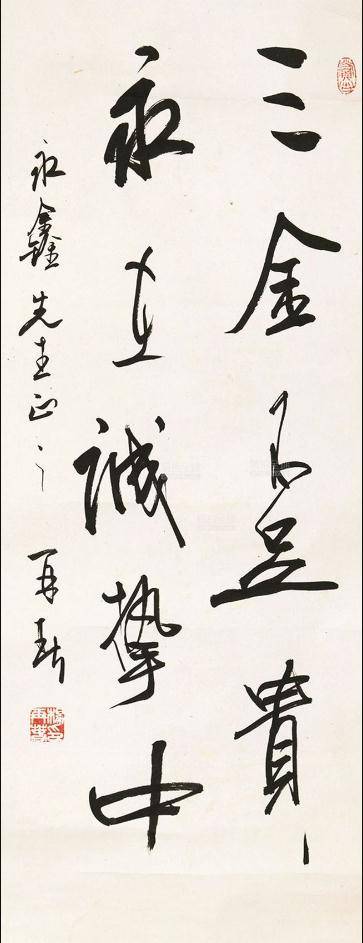 三金不足貴
永在誠摯中
永鑫先生正之 再春